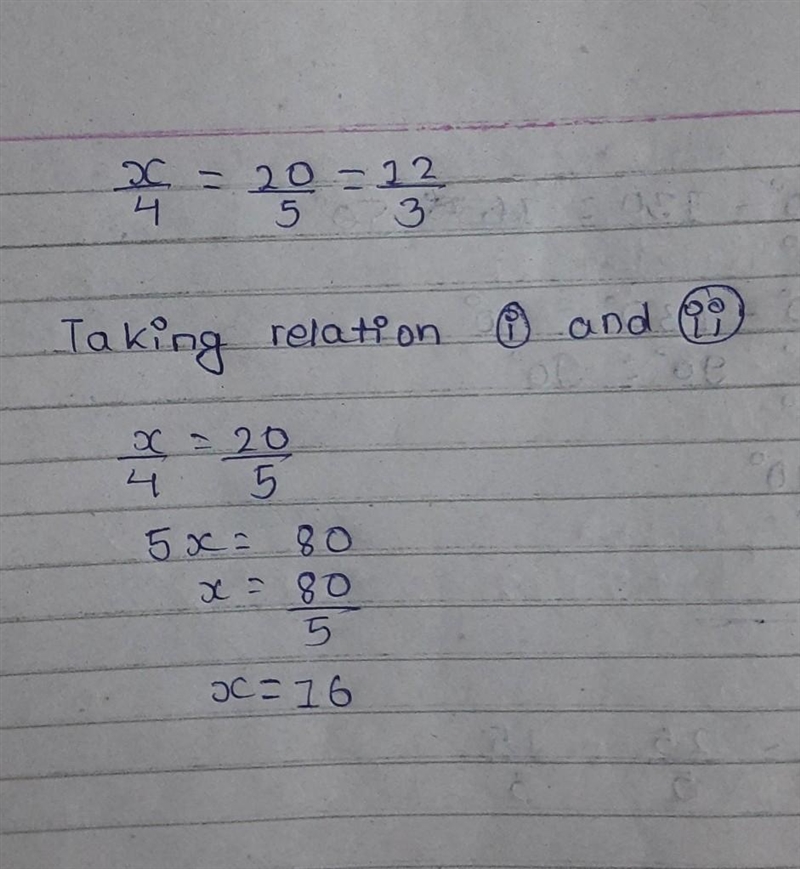 x/4 = 20/5 = 12/3
Taking relation (i) and (ii)
x/4 = 20/5
5x = 80
x = 80/5
x = 16